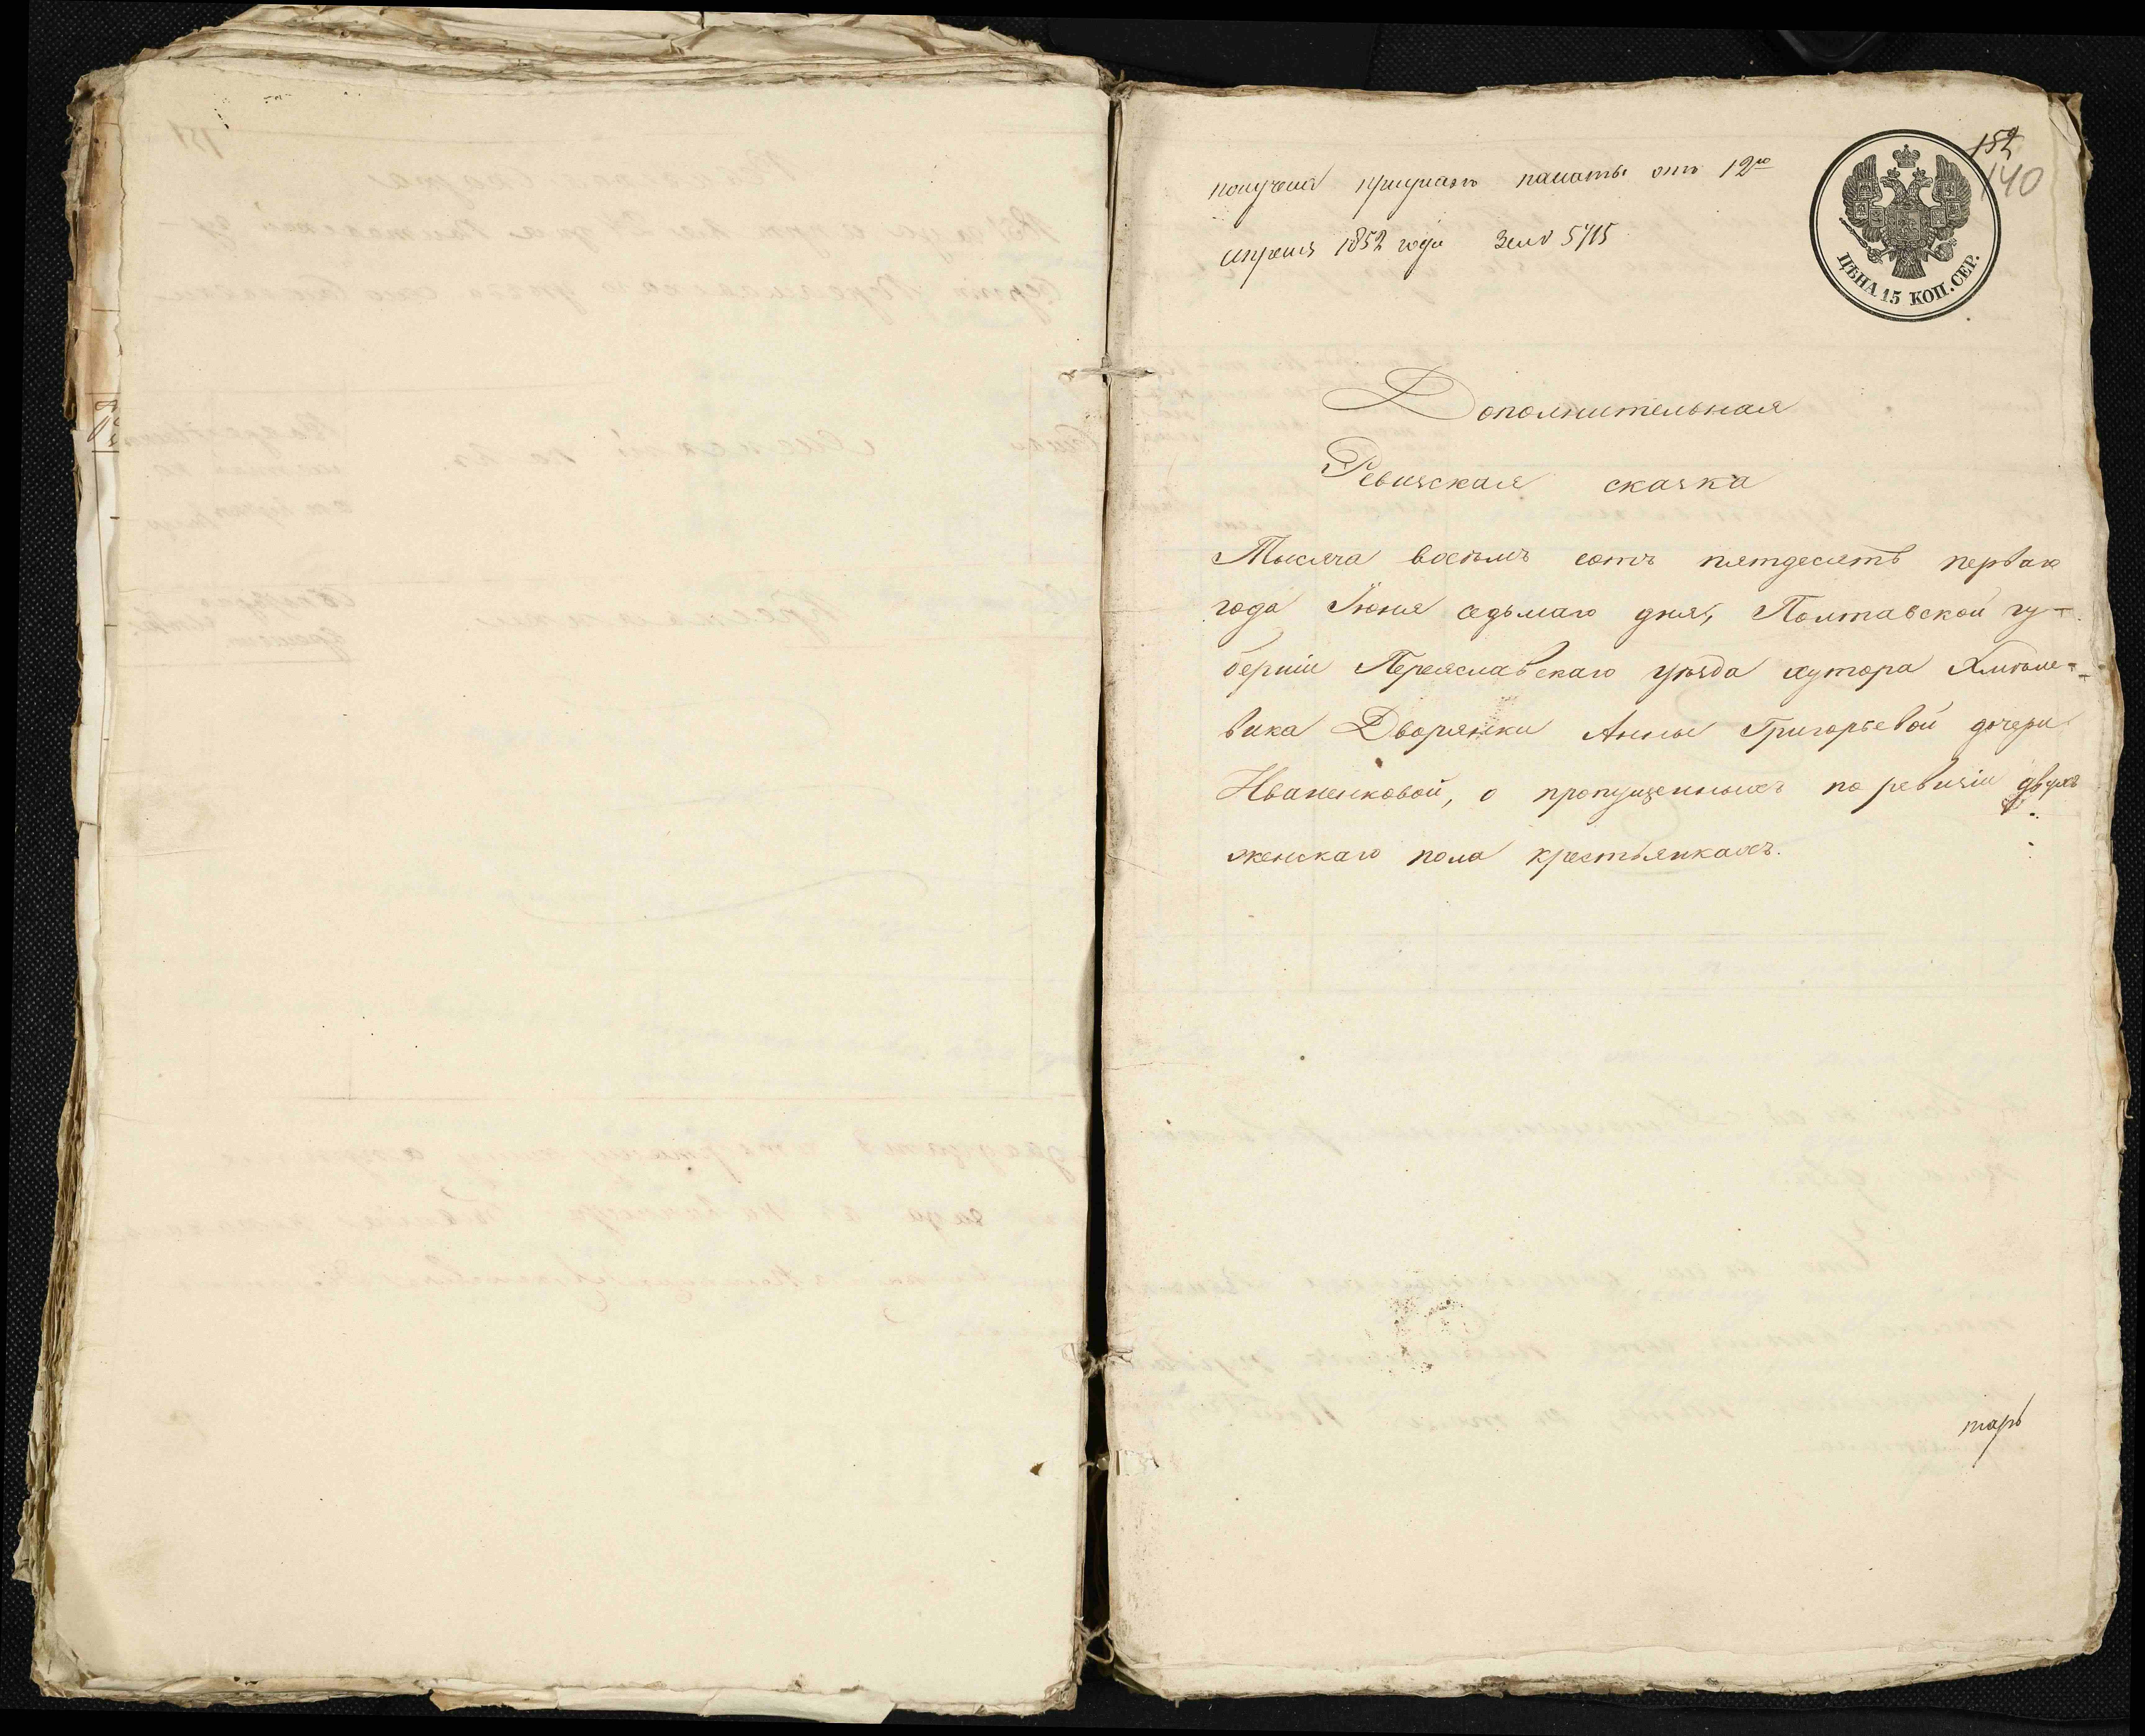 152
140
получена при указѣ палаты отъ 12го
апреля 1852 года За № 5715
ЦѢНА 15 КОП. СЕР.
Дополнительная
Ревизская сказка
Тысяча восѣмъ сотъ пятдесятъ перваго
года Іюня седьмаго дня, Полтавской гу-
берніи Переяславскаго уѣзда хутора Хмѣле-
вика Дворянки Анны Григорьевой дочери
Иваненковой, о пропущенныхъ по ревизіи двухъ
женскаго пола крестьянкахъ.
тарь